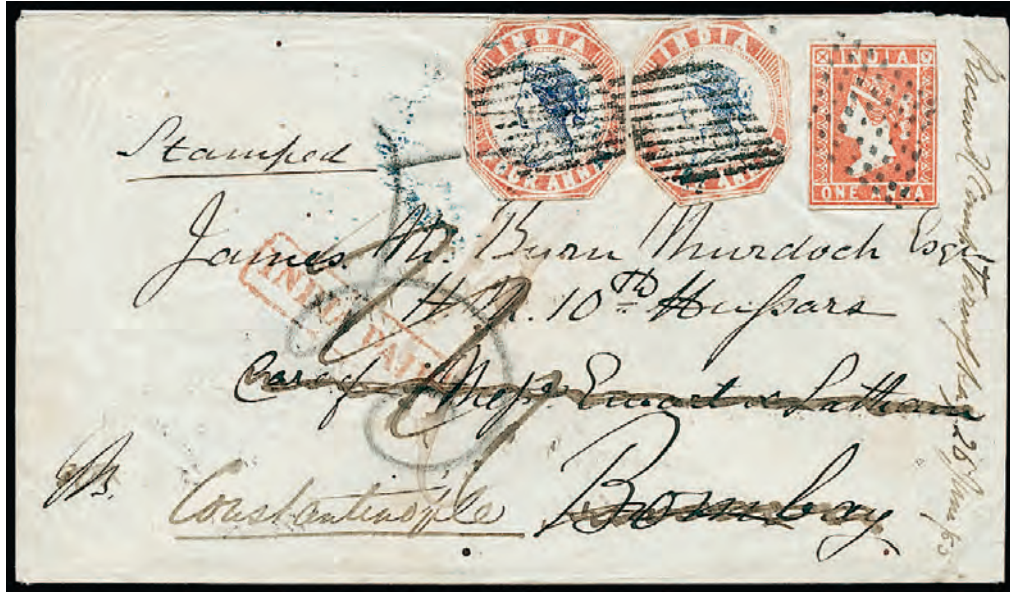 INDIA
FOUR ANNAS
INDIA
ANNAS
INDIA
ONE ANNA
Stamped
James M. Burn Murdoch Esqr
H.M. 10th Hussars
Care of Messrs. Ewart & Latham
Bombay
Constantinople
INDIA PAID
Camp